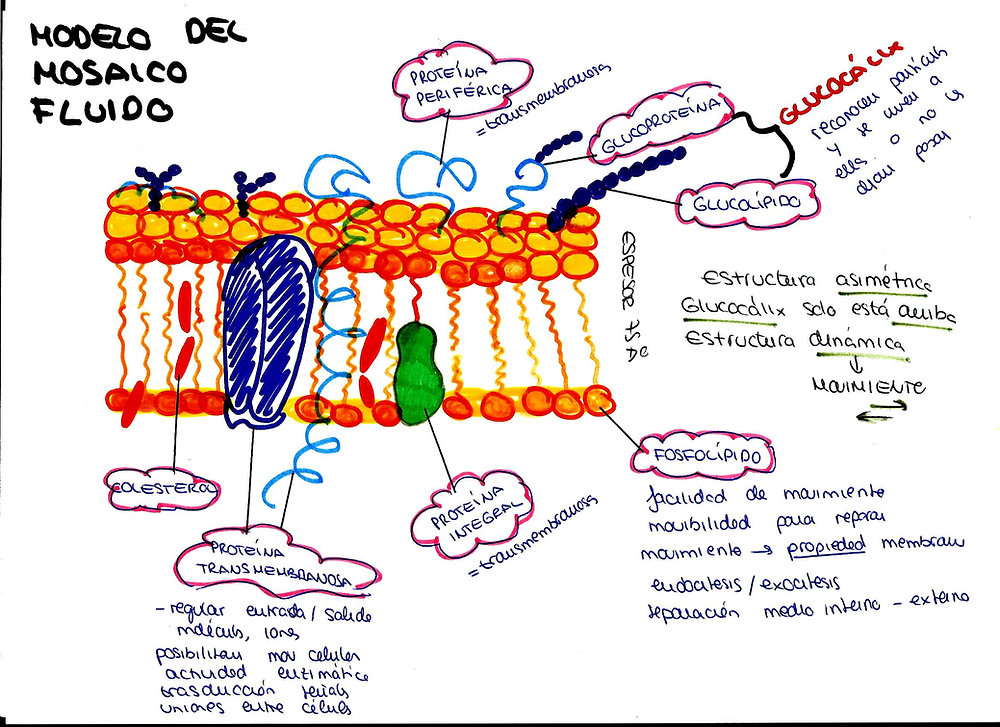 MODELO DEL
MOSAICO
FLUIDO
PROTEÍNA
PERIFÉRICA
=transmembranosa
GLUCOPROTEÍNA
GLUCOCÁLIX
reconocen
y se unen a
ella o no la
dejan pasar
GLUCOLÍPIDO
ESPESOR 75 Å
Estructura asimétrica
Glucocálix solo está arriba
Estructura dinámica
↓
MOVIMIENTO
FOSFOLÍPIDO
facilidad de movimiento
movibilidad para reparar
movimiento → propiedad membrana
endocitesis / exocitesis
separación medio interno - externo
COLESTEROL
PROTEÍNA
TRANSMEMBRANOSA
- regular entrada / salida
moléculs, iones
posibilitan mov celular
actividad enzimática
trasducción señals
uniones entre céluls
PROTEÍNA
INTEGRAL
=transmembranosa